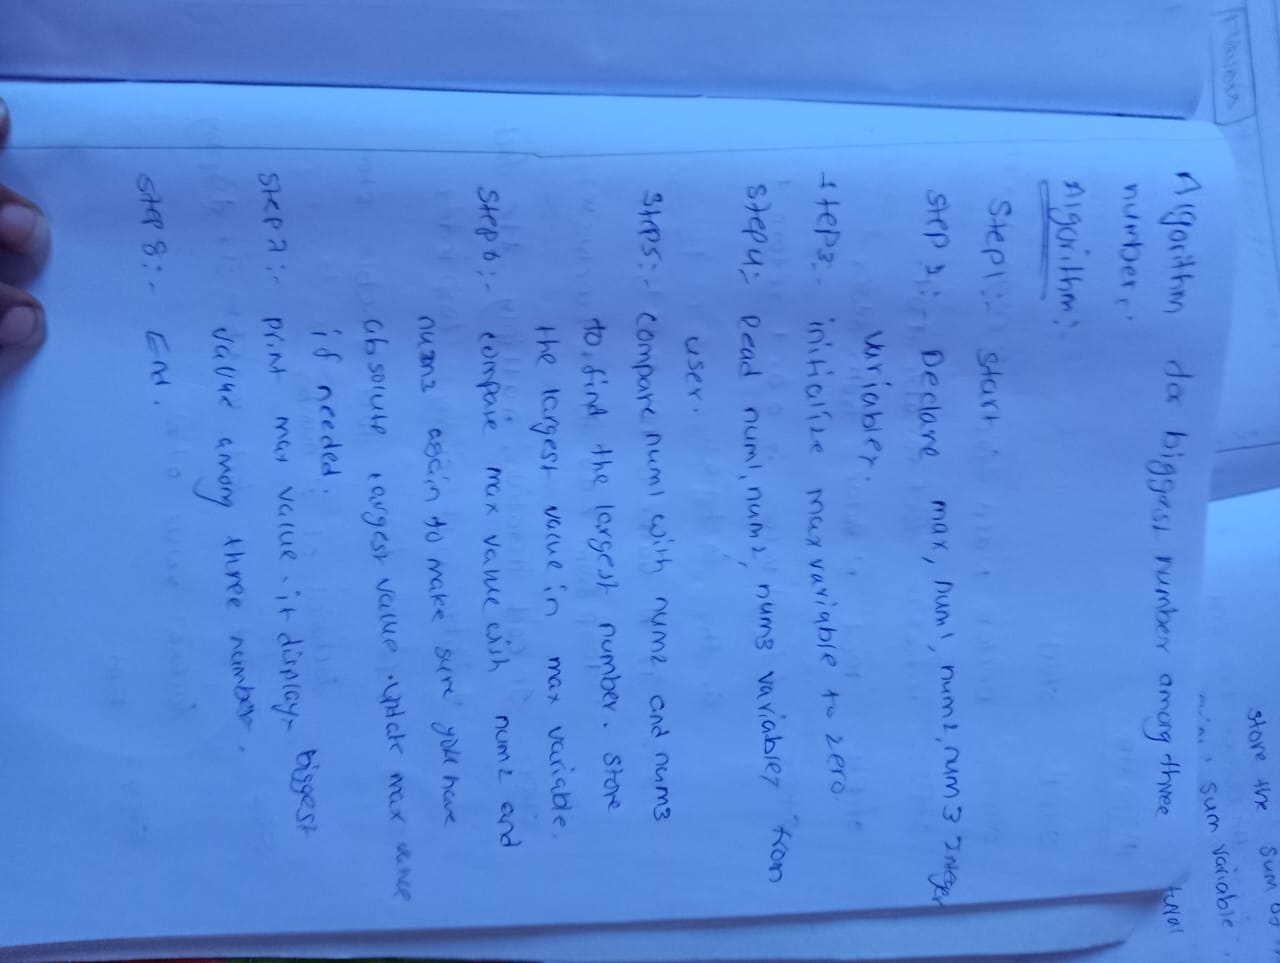 Algorithm for biggest number among three
number:
Algorithm:
Step1:- Start
Step 2:- Declare max, num1, num2, num3 Integer
variables.
Step3:- initialize max variable to zero.
Step4:- Read num1, num2, num3 variables from
user.
Step5:- compare num1 with num2 and num3
to find the largest number. store
the largest value in max variable.
Step6:- compare max value with num2 and
num3 again to make sure you have
absolute largest value. update max value
if needed.
Step 7:- print max value. it displays biggest
value among three numbers.
Step 8:- End.
store the sum
sum variable.